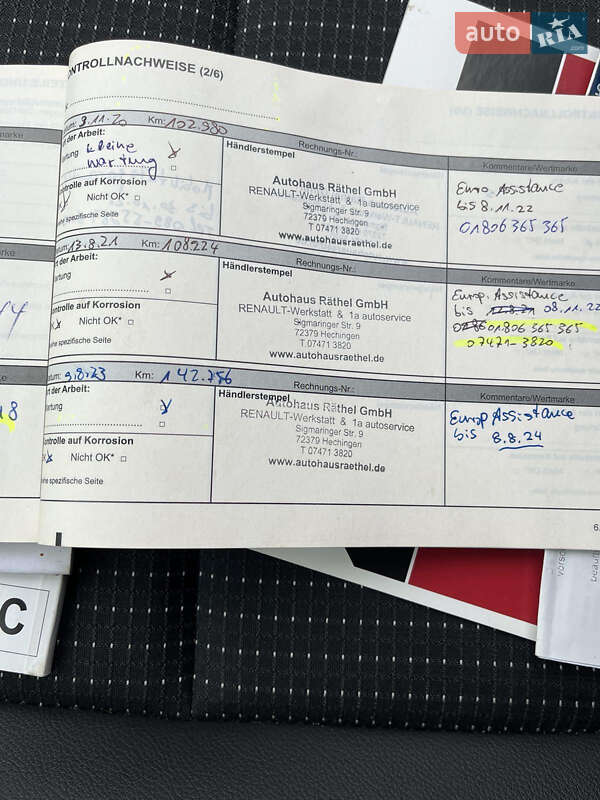 auto RIA .com
KONTROLLNACHWEISE (2/6)
Datum: 9.11.20 Km: 102.980
Art der Arbeit:
Wartung kleine
wartung
Kontrolle auf Korrosion
Nicht OK*
Siehe spezifische Seite
Rechnungs-Nr.:
Händlerstempel
Autohaus Räthel GmbH
RENAULT-Werkstatt & 1a autoservice
Sigmaringer Str. 9
72379 Hechingen
T 07471 3820
www.autohausraethel.de
Kommentare/Wertmarke
Euro Assistance
bis 8.11.22
01806 365 365
Datum: 13.8.21 Km: 108224
Art der Arbeit:
Wartung
Kontrolle auf Korrosion
OK Nicht OK*
Siehe spezifische Seite
Rechnungs-Nr.:
Händlerstempel
Autohaus Räthel GmbH
RENAULT-Werkstatt & 1a autoservice
Sigmaringer Str. 9
72379 Hechingen
T 07471 3820
www.autohausraethel.de
Kommentare/Wertmarke
Europ. Assistance
bis 08.11.22
01806 365 365
07471-3820
Datum: 9.8.23 Km: 142.756
Art der Arbeit:
Wartung
Kontrolle auf Korrosion
OK Nicht OK*
Siehe spezifische Seite
Rechnungs-Nr.:
Händlerstempel
Autohaus Räthel GmbH
RENAULT-Werkstatt & 1a autoservice
Sigmaringer Str. 9
72379 Hechingen
T 07471 3820
www.autohausraethel.de
Kommentare/Wertmarke
Europ Assistance
bis 8.8.24
6.
C